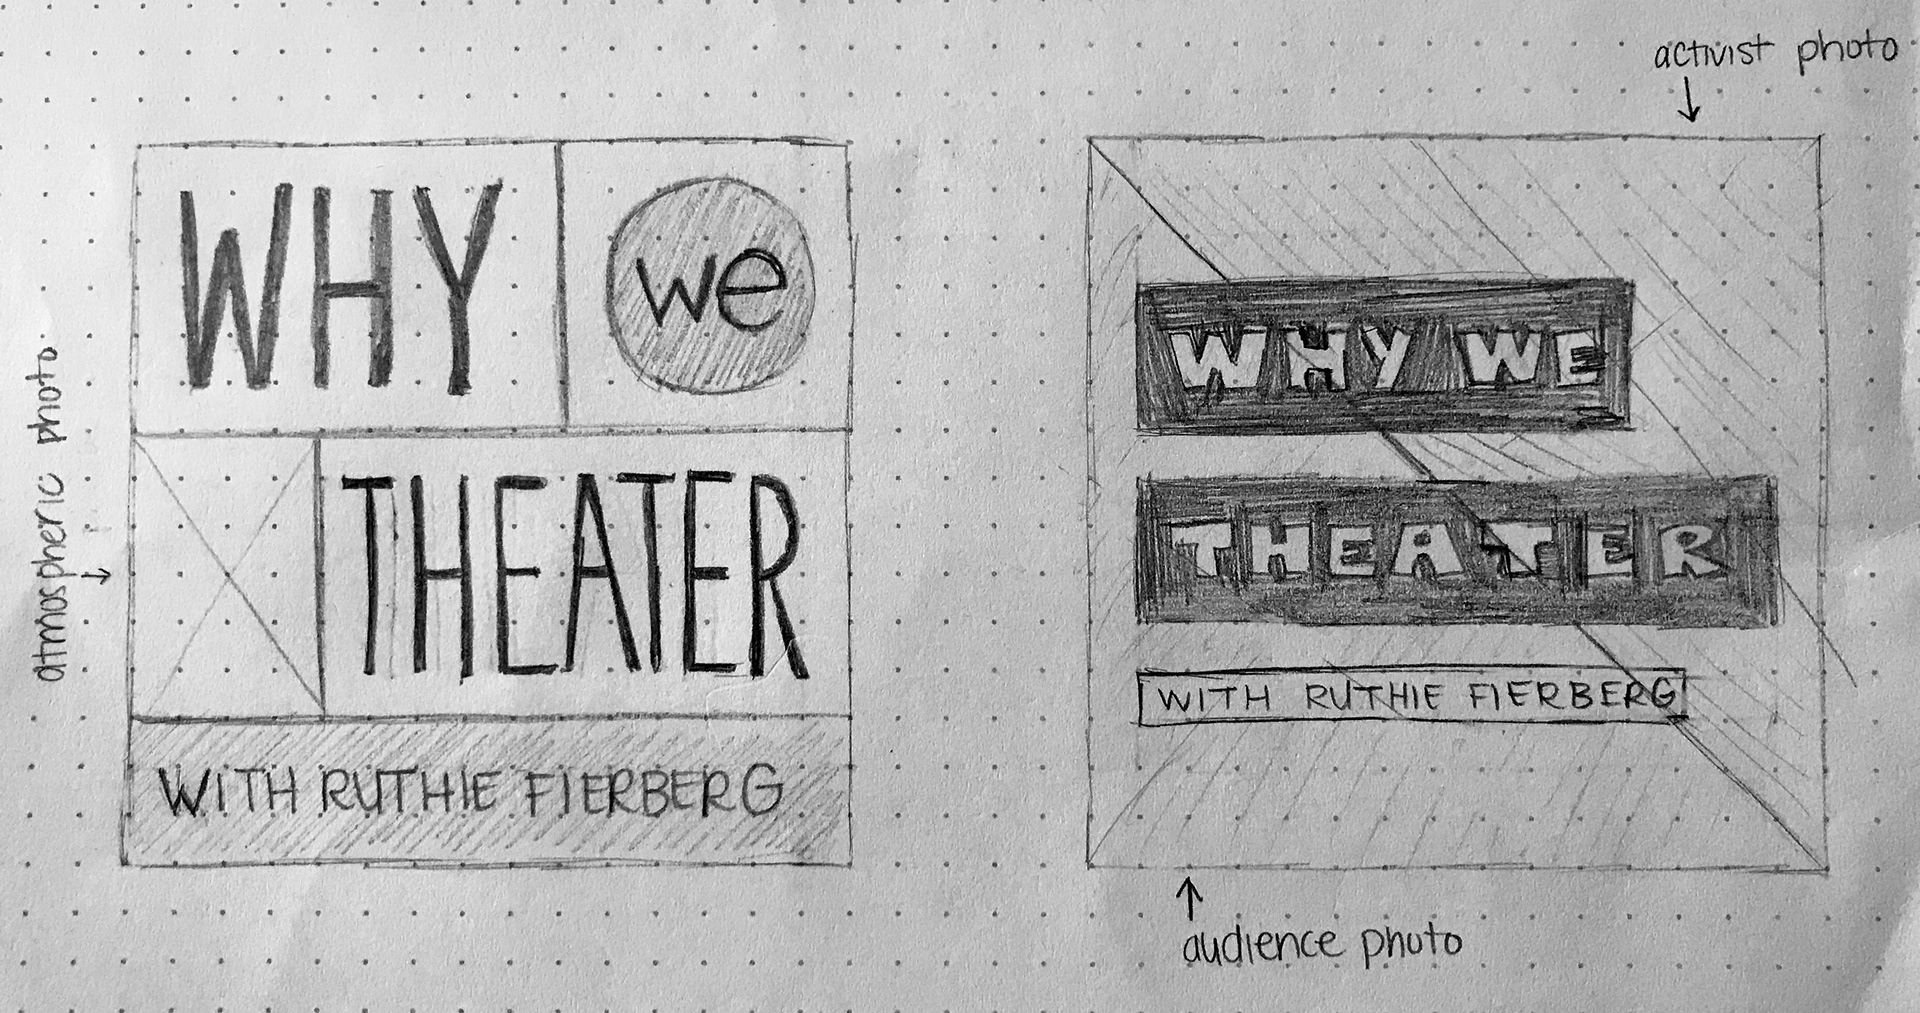 atmospheric photo
WHY we
THEATER
WITH RUTHIE FIERBERG
activist photo
WHY WE
THEATER
WITH RUTHIE FIERBERG
audience photo